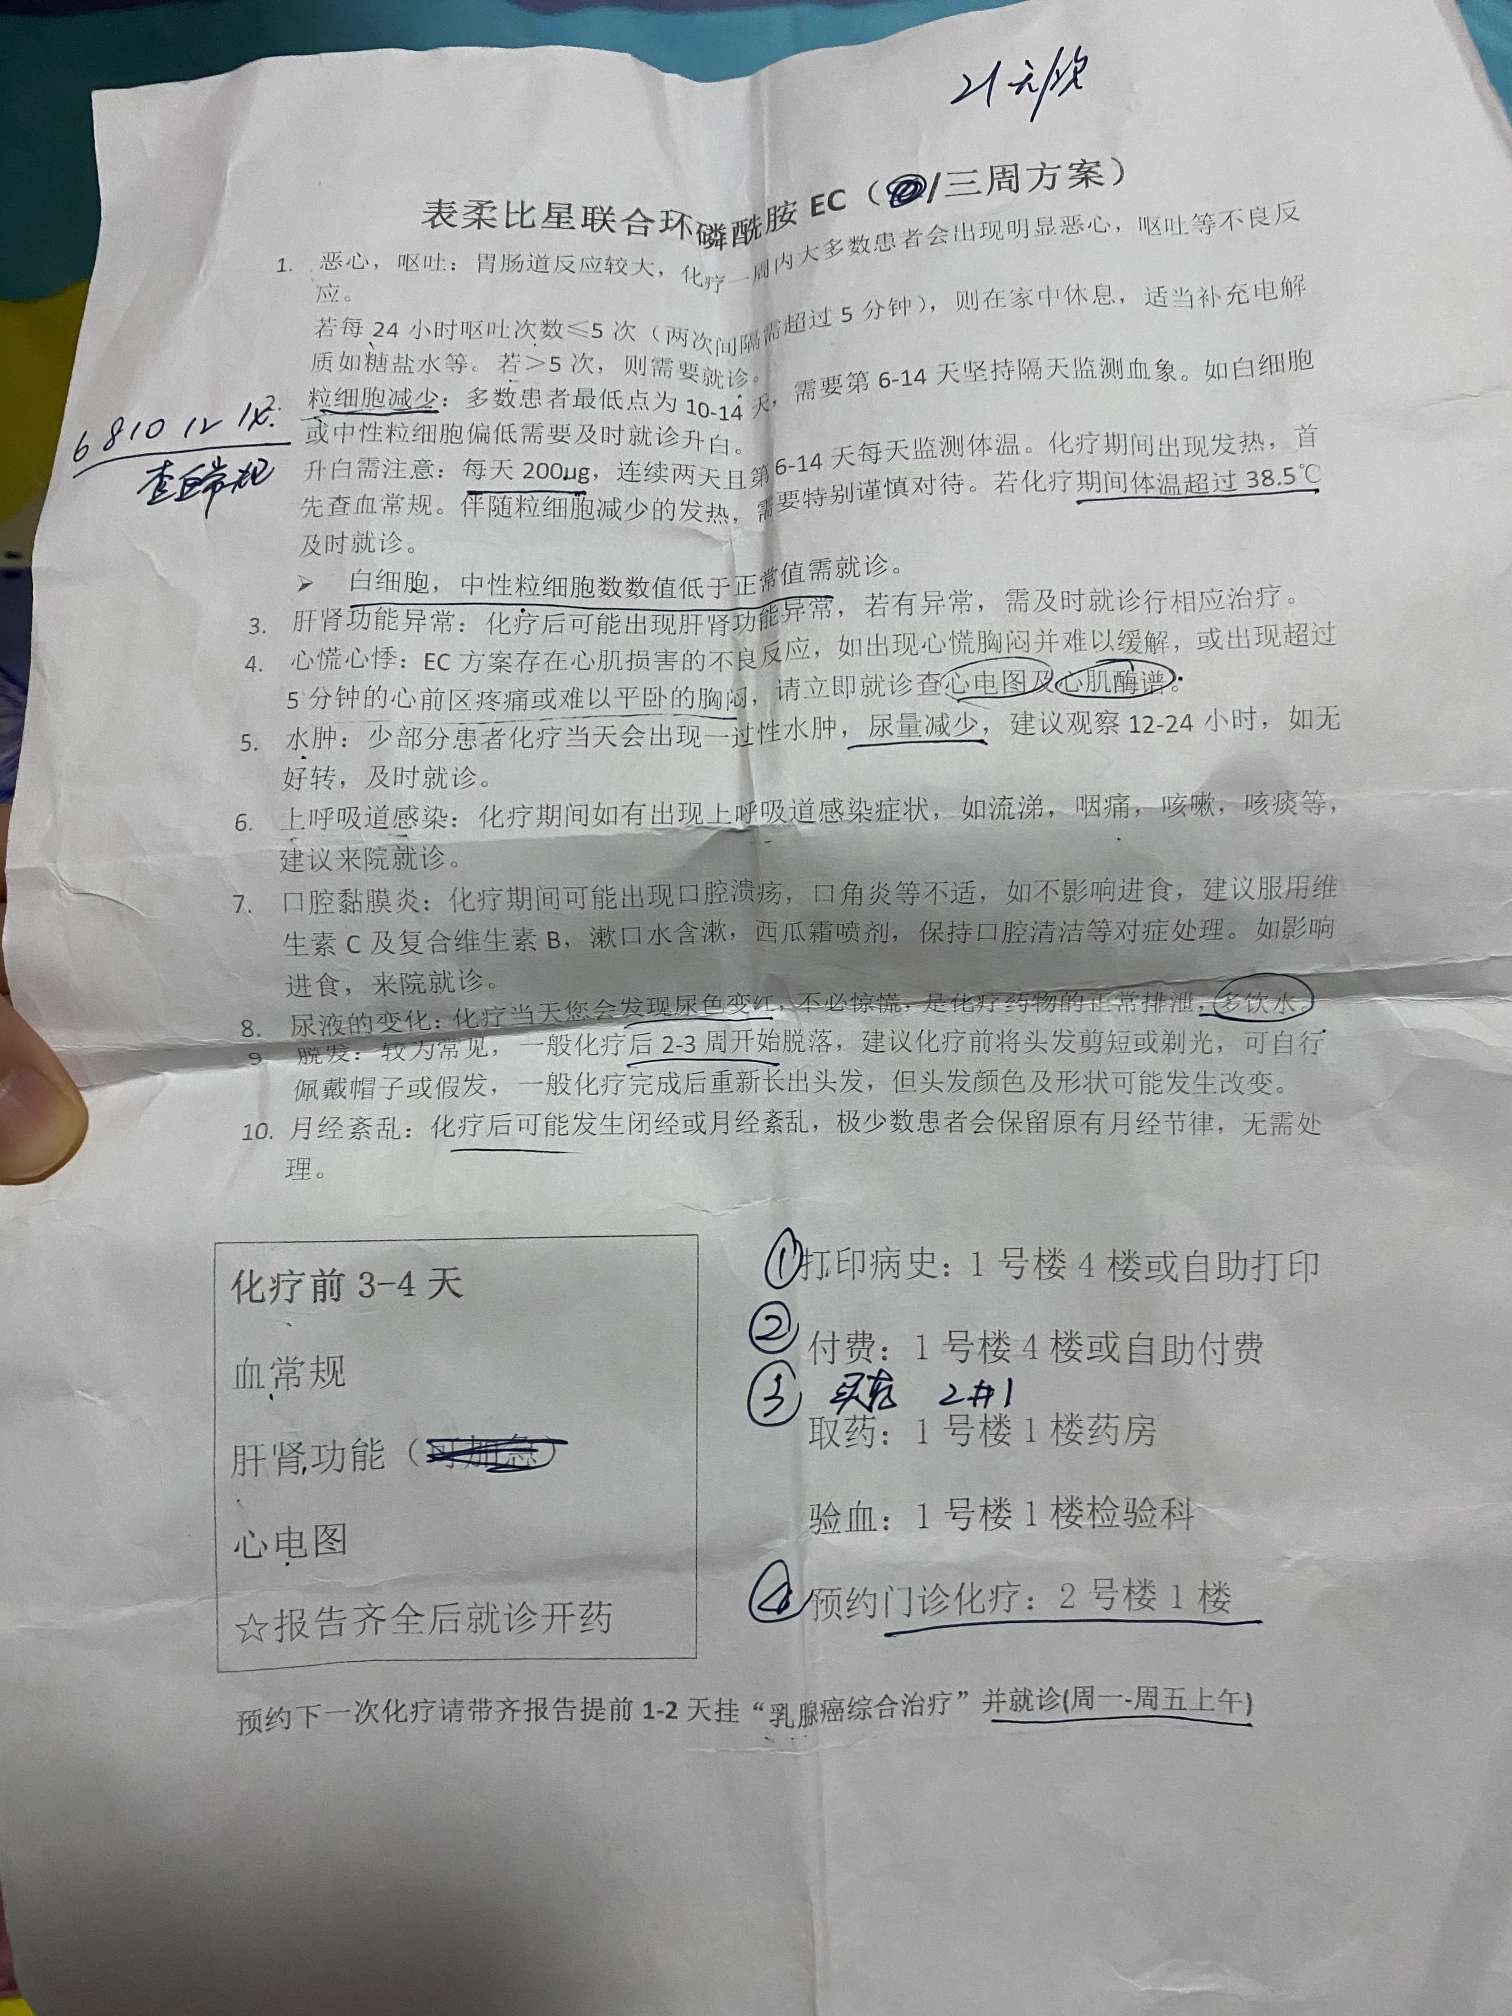 21天/次
表柔比星联合环磷酰胺 EC（/三周方案）
1. 恶心，呕吐：胃肠道反应较大，化疗一周内大多数患者会出现明显恶心，呕吐等不良反
应。
若每 24 小时呕吐次数≤5 次（两次间隔需超过 5 分钟），则在家中休息，适当补充电解
质如糖盐水等。若＞5 次，则需要就诊。
2. 粒细胞减少：多数患者最低点为 10-14 天，需要第 6-14 天坚持隔天监测血象。如白细胞
6 8 10 12 14
或中性粒细胞偏低需要及时就诊升白。
查血常规
升白需注意：每天 200μg，连续两天且第 6-14 天每天监测体温。化疗期间出现发热，首
先查血常规。伴随粒细胞减少的发热，需要特别谨慎对待。若化疗期间体温超过 38.5℃
及时就诊。
➢ 白细胞，中性粒细胞数数值低于正常值需就诊。
3. 肝肾功能异常：化疗后可能出现肝肾功能异常，若有异常，需及时就诊行相应治疗。
4. 心慌心悸：EC 方案存在心肌损害的不良反应，如出现心慌胸闷并难以缓解，或出现超过
5 分钟的心前区疼痛或难以平卧的胸闷，请立即就诊查心电图及心肌酶谱。
5. 水肿：少部分患者化疗当天会出现一过性水肿，尿量减少，建议观察 12-24 小时，如无
好转，及时就诊。
6. 上呼吸道感染：化疗期间如有出现上呼吸道感染症状，如流涕，咽痛，咳嗽，咳痰等，
建议来院就诊。
7. 口腔黏膜炎：化疗期间可能出现口腔溃疡，口角炎等不适，如不影响进食，建议服用维
生素 C 及复合维生素 B，漱口水含漱，西瓜霜喷剂，保持口腔清洁等对症处理。如影响
进食，来院就诊。
8. 尿液的变化：化疗当天您会发现尿色变红，不必惊慌，是化疗药物的正常排泄，多饮水
9 脱发：较为常见，一般化疗后 2-3 周开始脱落，建议化疗前将头发剪短或剃光，可自行
佩戴帽子或假发，一般化疗完成后重新长出头发，但头发颜色及形状可能发生改变。
10. 月经紊乱：化疗后可能发生闭经或月经紊乱，极少数患者会保留原有月经节律，无需处
理。
化疗前 3-4 天
血常规
肝肾功能（可加急）
心电图
☆报告齐全后就诊开药
①打印病史：1 号楼 4 楼或自助打印
② 付费：1 号楼 4 楼或自助付费
③ 2#1
取药：1 号楼 1 楼药房
验血：1 号楼 1 楼检验科
④预约门诊化疗：2 号楼 1 楼
预约下一次化疗请带齐报告提前 1-2 天挂“乳腺癌综合治疗”并就诊(周一-周五上午)